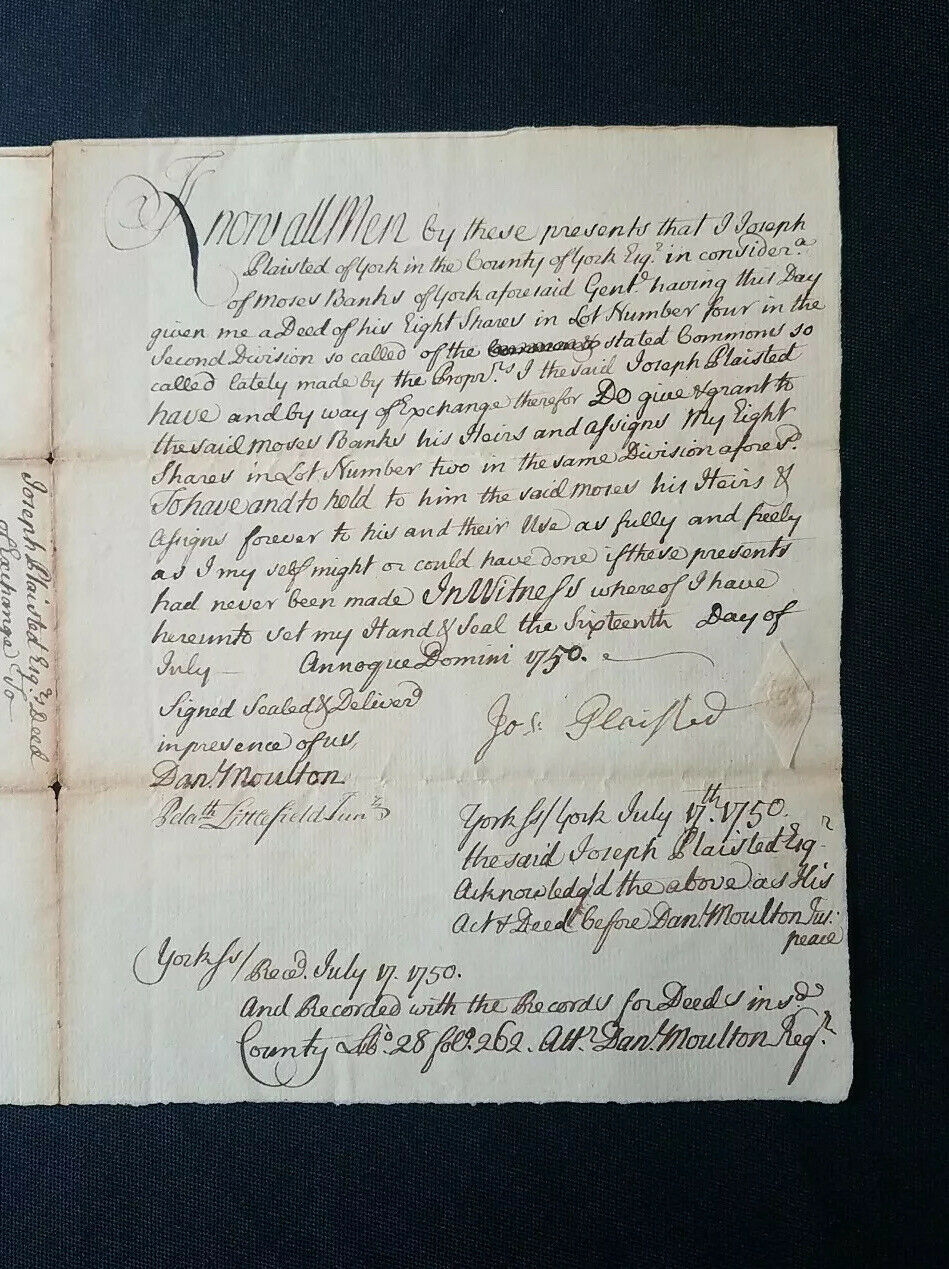 Know all Men by these presents that I Joseph
Plaisted of York in the County of York Esq.r in consider.a
of Moses Banks of York aforesaid Gent.n having this Day
given me a Deed of his Eight Shares in Lot Number four in the
Second Division so called of the stated Commons so
called lately made by the Propr.rs I the said Joseph Plaisted
have and by way of Exchange therefor Do give & grant to
the said Moses Banks his Heirs and Assigns My Eight
Shares in Lot Number two in the same Division afores.d
To have and to hold to him the said Moses his Heirs &
Assigns forever to his and their Use as fully and freely
as I my self might or could have done if these presents
had never been made In Witness whereof I have
hereunto set my Hand & Seal the Sixteenth Day of
July Annoque Domini 1750.
Signed Sealed & Deliver'd
in presence of us,
Dan.l Moulton
Pela.th Littlefield Jun.r
Jos: Plaisted
York ss/ York July 17.th 1750.
the said Joseph Plaisted Esq.r
Acknowledg'd the above as His
Act & Deed before Dan.l Moulton Jus:
peace
York ss/
Rece.d July 17. 1750.
And Recorded with the Records for Deeds in s.d
County Lib.o 28 fol.o 262. Att.r Dan.l Moulton Reg.r
Joseph Plaisted Esq.rs Deed
of Exchange To